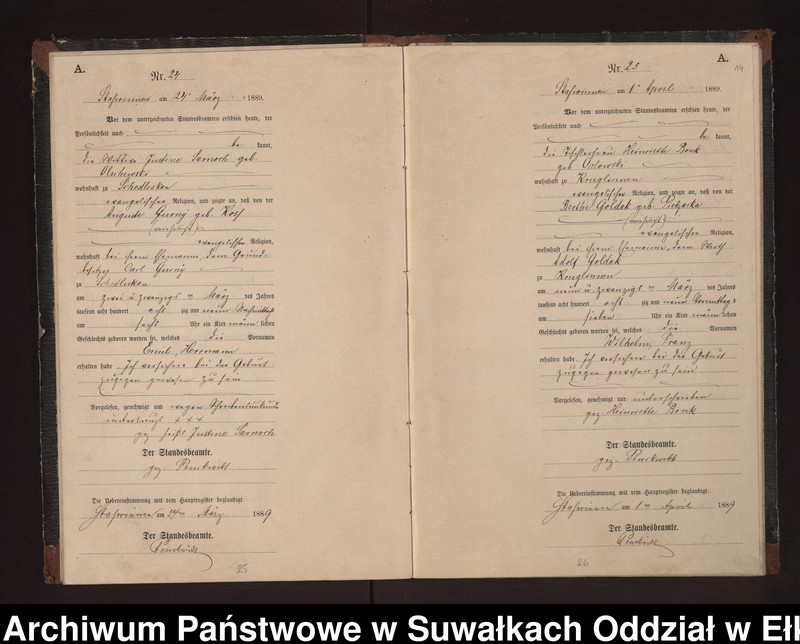 A.
Nr. 24
am 24 März 1889.
Vor dem unterzeichneten Standesbeamten erschien heute, der
Persönlichkeit nach
be kannt,
die Justine Sarnoch geb.
wohnhaft zu Schedlisken
evangelischer Religion, und zeigte an, daß von der
Auguste geb. Koch
(ehelich)
evangelischer Religion,
wohnhaft bei ihrem Ehemanne, dem Grund-
besitzer Carl
zu Schedlisken
am zwei u zwanzigs ten März des Jahres
tausend acht hundert acht zig und neun Nachmittags
um sechs Uhr ein Kind männ lichen
Geschlechts geboren worden sei, welches die Vornamen
Emil, Herrmann
erhalten habe. Ich versichere bei der Geburt
zugegen gewesen zu sein
Vorgelesen, genehmigt und wegen Schreibensunkunde
unterkreuzt + + +
gez. Justine Sarnoch
Der Standesbeamte.
gez.
Die Uebereinstimmung mit dem Hauptregister beglaubigt.
am 24ten März 1889
Der Standesbeamte.
25
A.
Nr. 25
am 1ten April 1889.
Vor dem unterzeichneten Standesbeamten erschien heute, der
Persönlichkeit nach
be kannt,
die Tischlerfrau Heinriette Bonk
geb Orlowski
wohnhaft zu Kruglinnen
evangelischer Religion, und zeigte an, daß von der
Berthe Goldak geb.
(ehelich)
evangelischer Religion,
wohnhaft bei ihrem Ehemanne, dem Wirth
Adolf Goldak
zu Kruglinnen
am neun u zwanzigs ten März des Jahres
tausend acht hundert acht zig und neun Vormittags
um sieben Uhr ein Kind männ lichen
Geschlechts geboren worden sei, welches die Vornamen
Wilhelm, Franz
erhalten habe. Ich versichere bei der Geburt
zugegen gewesen zu sein
Vorgelesen, genehmigt und unterschrieben
gez. Heinriette Bonk
Der Standesbeamte.
gez.
Die Uebereinstimmung mit dem Hauptregister beglaubigt.
am 1ten April 1889
Der Standesbeamte.
26
Archiwum Państwowe w Suwałkach Oddział w Eł